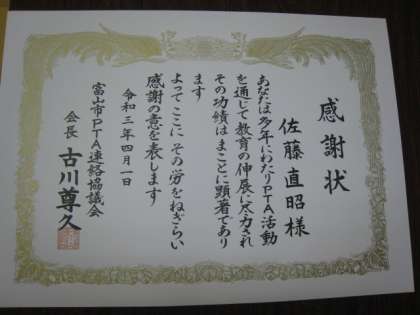 感謝状
佐藤直昭様
あなたは多年にわたりPTA活動
を通じて教育の伸展に尽力され
その功績はまことに顕著であり
ます
よってここに その労をねぎらい
感謝の意を表します
令和三年四月一日
富山市PTA連絡協議会
会長 古川尊久